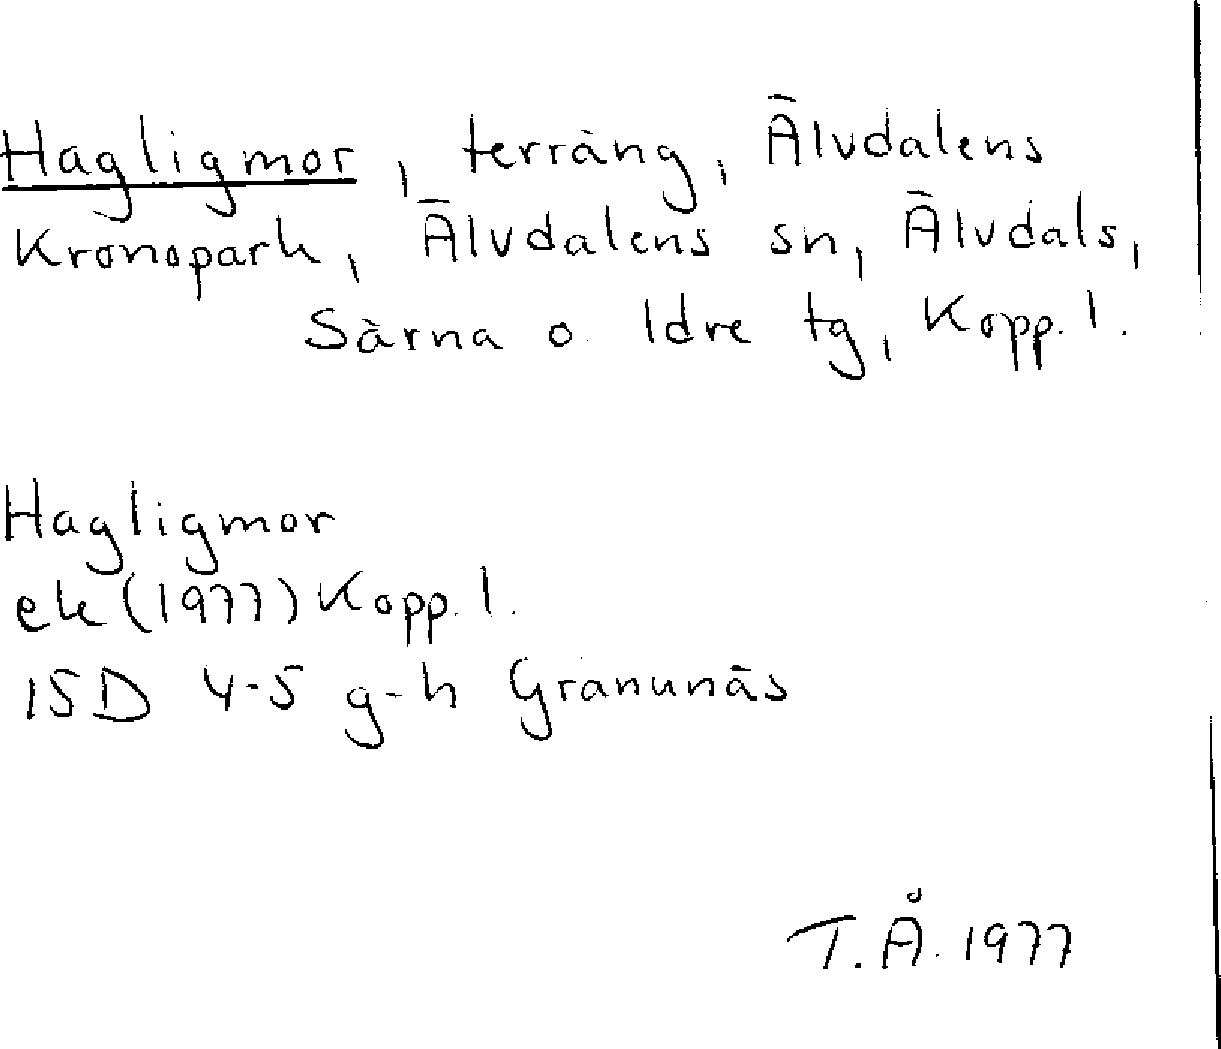 Hagligmor, terräng, Älvdalens
Kronopark, Älvdalens sn, Älvdals,
Särna o. Idre tg, Kopp. l.
Hagligmor
ek (1977) Kopp. l.
15D 4-5 g-h Granunäs
T.Å. 1977